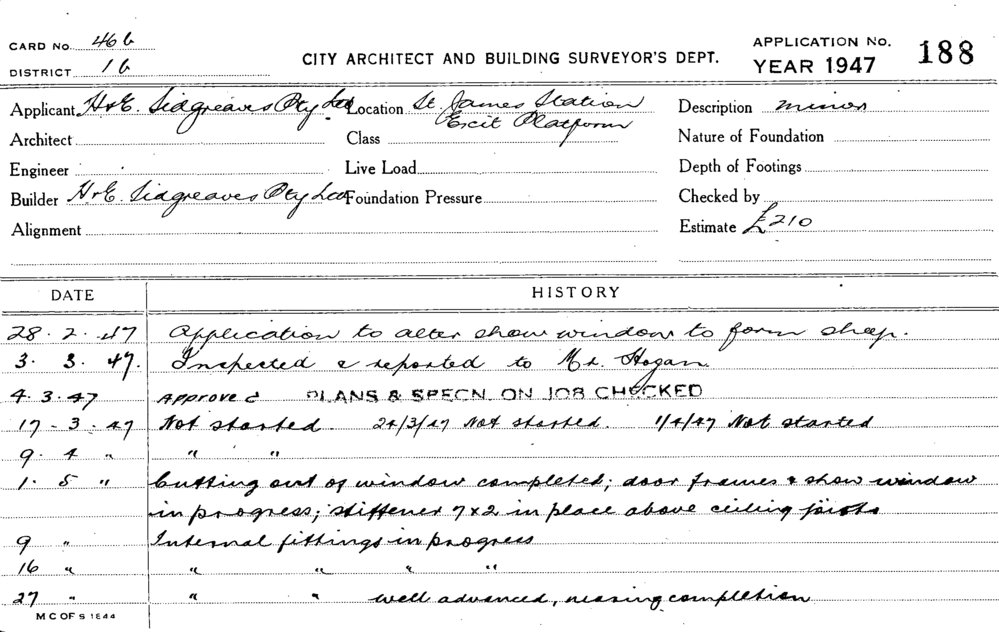 CARD No. 46 b
DISTRICT 1 b
CITY ARCHITECT AND BUILDING SURVEYOR'S DEPT.
APPLICATION No. 188
YEAR 1947
Applicant H & E. Sidgreaves Pty Ltd Location St. James Station Description minor
Exit Platform
Architect Class Nature of Foundation
Engineer Live Load Depth of Footings
Builder H & E. Sidgreaves Pty Ltd Foundation Pressure Checked by
Alignment Estimate £210
DATE HISTORY
28 . 2 . 47 Application to alter show window to form shop.
3 . 3 . 47. Inspected & reported to Mr. Hogan.
4 . 3 . 47 Approved PLANS & SPECN. ON JOB CHECKED
17 - 3 . 47 Not started. 24/3/47 Not started. 1/4/47 Not started
9 . 4 " " "
1 . 5 " Cutting out of window completed; door frames & show window
in progress; stiffener 7 x 2 in place above ceiling joists
9 " Internal fittings in progress
16 " " " " "
27 " " " well advanced, nearing completion
M C OF S 1844